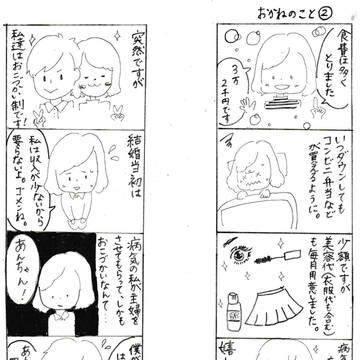 おかねのこと②
食費は多く
とりました
3万
2千円です
いつダウンしても
コンビニ弁当など
が買えるように。
少額ですが
美容代(衣服代も含む)
も毎月用意しました。
病気
嬉し
突然ですが
私達はおこづかい制です!
結婚当初は
私は収入が少ないから
要らないよ。ゴメンね。
病気の私が主婦を
させてもらって、しかも
おこづかいなんて…
あんちゃん!
僕が